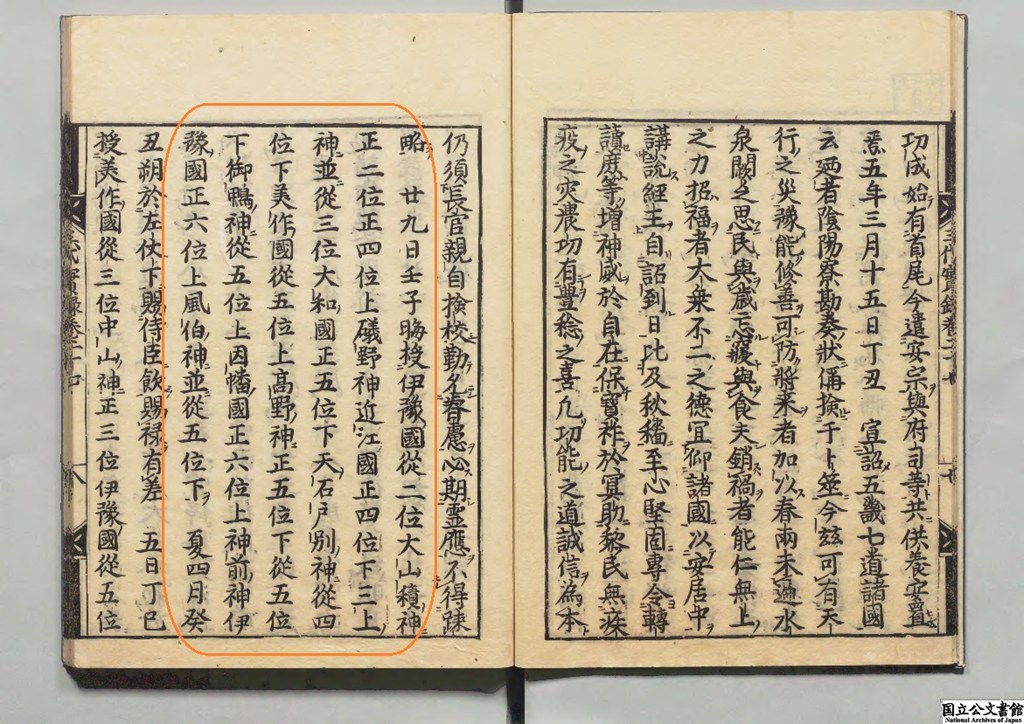 功成始有首尾今遣安宗與府司等共供養安置
焉五年三月十五日丁丑　宣詔五畿七道諸國
云廼者陰陽寮勘奏狀偁撿于卜筮今玆可有天
行之災豫能修善可防將来者加以春雨未遍水
泉闕乏思民與歳忘寢與食夫銷禍者能仁無上
之力招福者大乗不二之德冝仰諸國以安居中
講說經王自詔到日比及秋穡至心堅固專令轉
讀庶等増神威於自在保寳祚於冥助黎民無疾
疫之灾農功有豐稔之喜凢功能之道誠信為本
仍須長官親自撿校勤夕春慮必期霊應不得踈
略　廿九日壬子晦授伊豫國從二位大山積神
正二位正四位上礒野神近江國正四位下三上
神並從三位大和國正五位下天石戸别神從四
位下美作國從五位上髙野神正五位下從五位
下御鴨神從五位上因幡國正六位上神前神伊
豫國正六位上風伯神並從五位下　夏四月癸
丑朔於左仗下賜侍臣飲賜禄有差　五日丁巳
授美作國從三位中山神正三位伊豫國從五位
三代實録卷二十四
八
国立公文書館
National Archives of Japan